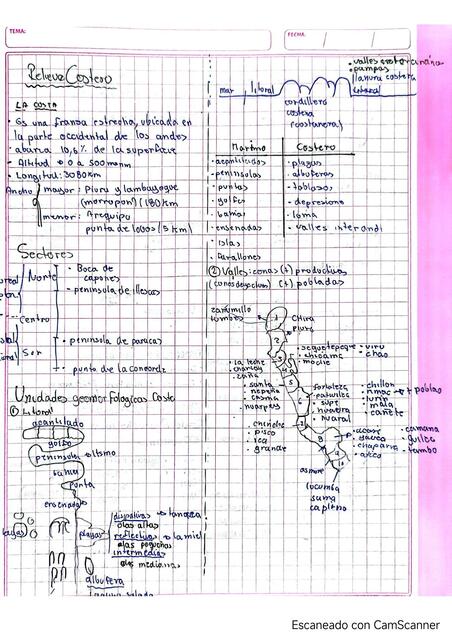 TEMA:
FECHA:
Relieve Costero
LA COSTA
• Es una franja estrecha, ubicada en
la parte occidental de los andes
• abarca 10,6% de la superficie
• Altitud → 0 a 500msnm
• Longitud: 3080km
Ancho
mayor: Piura y lambayeque
(morropon) (180km
menor: Arequipa
punta de lobos (5 km)
Sectores
Norte
• Boca de
capones
• peninsula de illescas
Centro
Sur
• peninsula de paracas
punta de la concordia
Unidades geomorfologicas Coste
① Litoral
acantilado
golfo
peninsula → itsmo
bahia
punta
ensenada
playas
disipativa → tanqueta
olas altas
reflectiva → la miel
olas pequeñas
intermedias
olas medianas
albufera
laguna salada
• pampas
mar
litoral
llanura costera
cordillera
costera
(costanera)
Marino
Costero
• acantilados
• peninsulas
• puntas
• golfos
• bahias
• ensenadas
• islas
• farallones
• playas
• albuferas
• tablazos
• depresione
• loma
• valles interandi
② Valles: zonas (+) productivas
(+) pobladas
zarumilla
tumbes
1
chira
piura
2
la leche
chancay
zaña
jequetepeque
chicama
moche
• viru
• chao
• santa
nepeña
casma
huarmey
5
fortaleza
pativilca
supe
huaura
huaral
• chillon
• rimac → + poblao
• lurin
• mala
• cañete
chincha
pisco
ica
grande
8
• acari
• yauca
• chaparra
• atico
• camana
• quilca
• tambo
osmore
locumba
sama
caplina
Escaneado con CamScanner